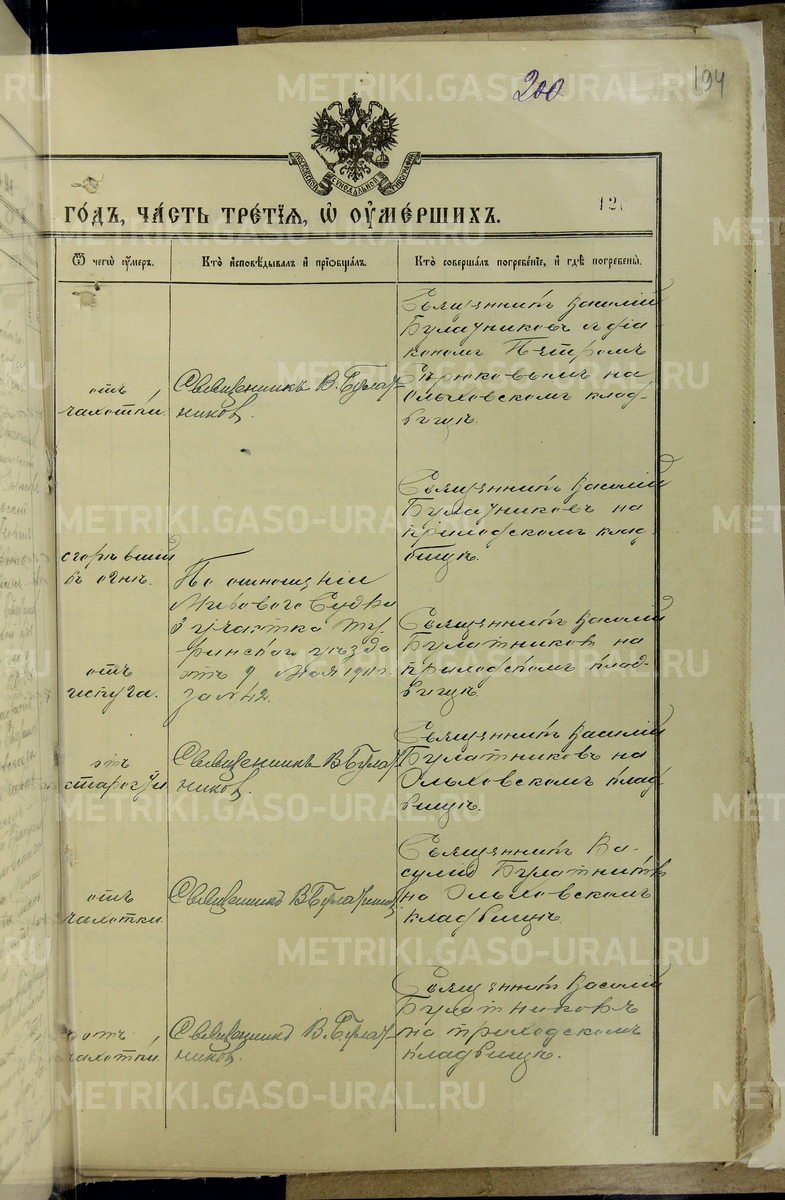 METRIKI.GASO-URAL.RU
200
194
МОСКОВСКОЙ СѴНОДАЛЬНОЙ ТИПОГРАФІИ
ГО́ДЪ, ЧА́СТЬ ТРЕ́ТІѦ, Ѽ ОУМЕ́РШИХЪ.
12
Ѿ чегѡ̀ оу҆́меръ.
Кто̀ и҆сповѣ́дывалъ и҆ прїѻбща́лъ.
Кто̀ соверша́лъ погребе́нїе, и҆ гдѣ̀ погребены̀.
отъ
чахотки.
Священникъ В. Булат-
ников.
Священникъ Василій
Булатниковъ съ діа-
кономъ Петромъ
Бирюковымъ на
Ольховскомъ клад-
бищѣ.
METRIKI.GASO-URAL.RU
сгорѣвшій
въ огнѣ.
Священникъ Василій
Булатниковъ на
приходскомъ клад-
бищѣ.
отъ
испуга.
По отношенію
Мирового Судьи
3 участка Ту-
ринскаго уѣзда
отъ 9 Мая 1911 г.
за № 42.
Священникъ Василій
Булатников на
приходскомъ клад-
бищѣ.
METRIKI.GASO-URAL.RU
отъ
старости
Священникъ В Булат-
ников.
Священникъ Василій
Булатниковъ на
Ольховскомъ клад-
бищѣ.
METRIKI.GASO-URAL.RU
отъ
чахотки.
Священникъ В Булатников
Священникъ Ва-
силій Булатниковъ
на Ольховскомъ
кладбищѣ.
METRIKI.GASO-URAL.RU
отъ
чахотки.
Священникъ В. Булат-
ников.
Священникъ Василій
Булатниковъ
на приходскомъ
кладбищѣ.
METRIKI.GASO-URAL.RU